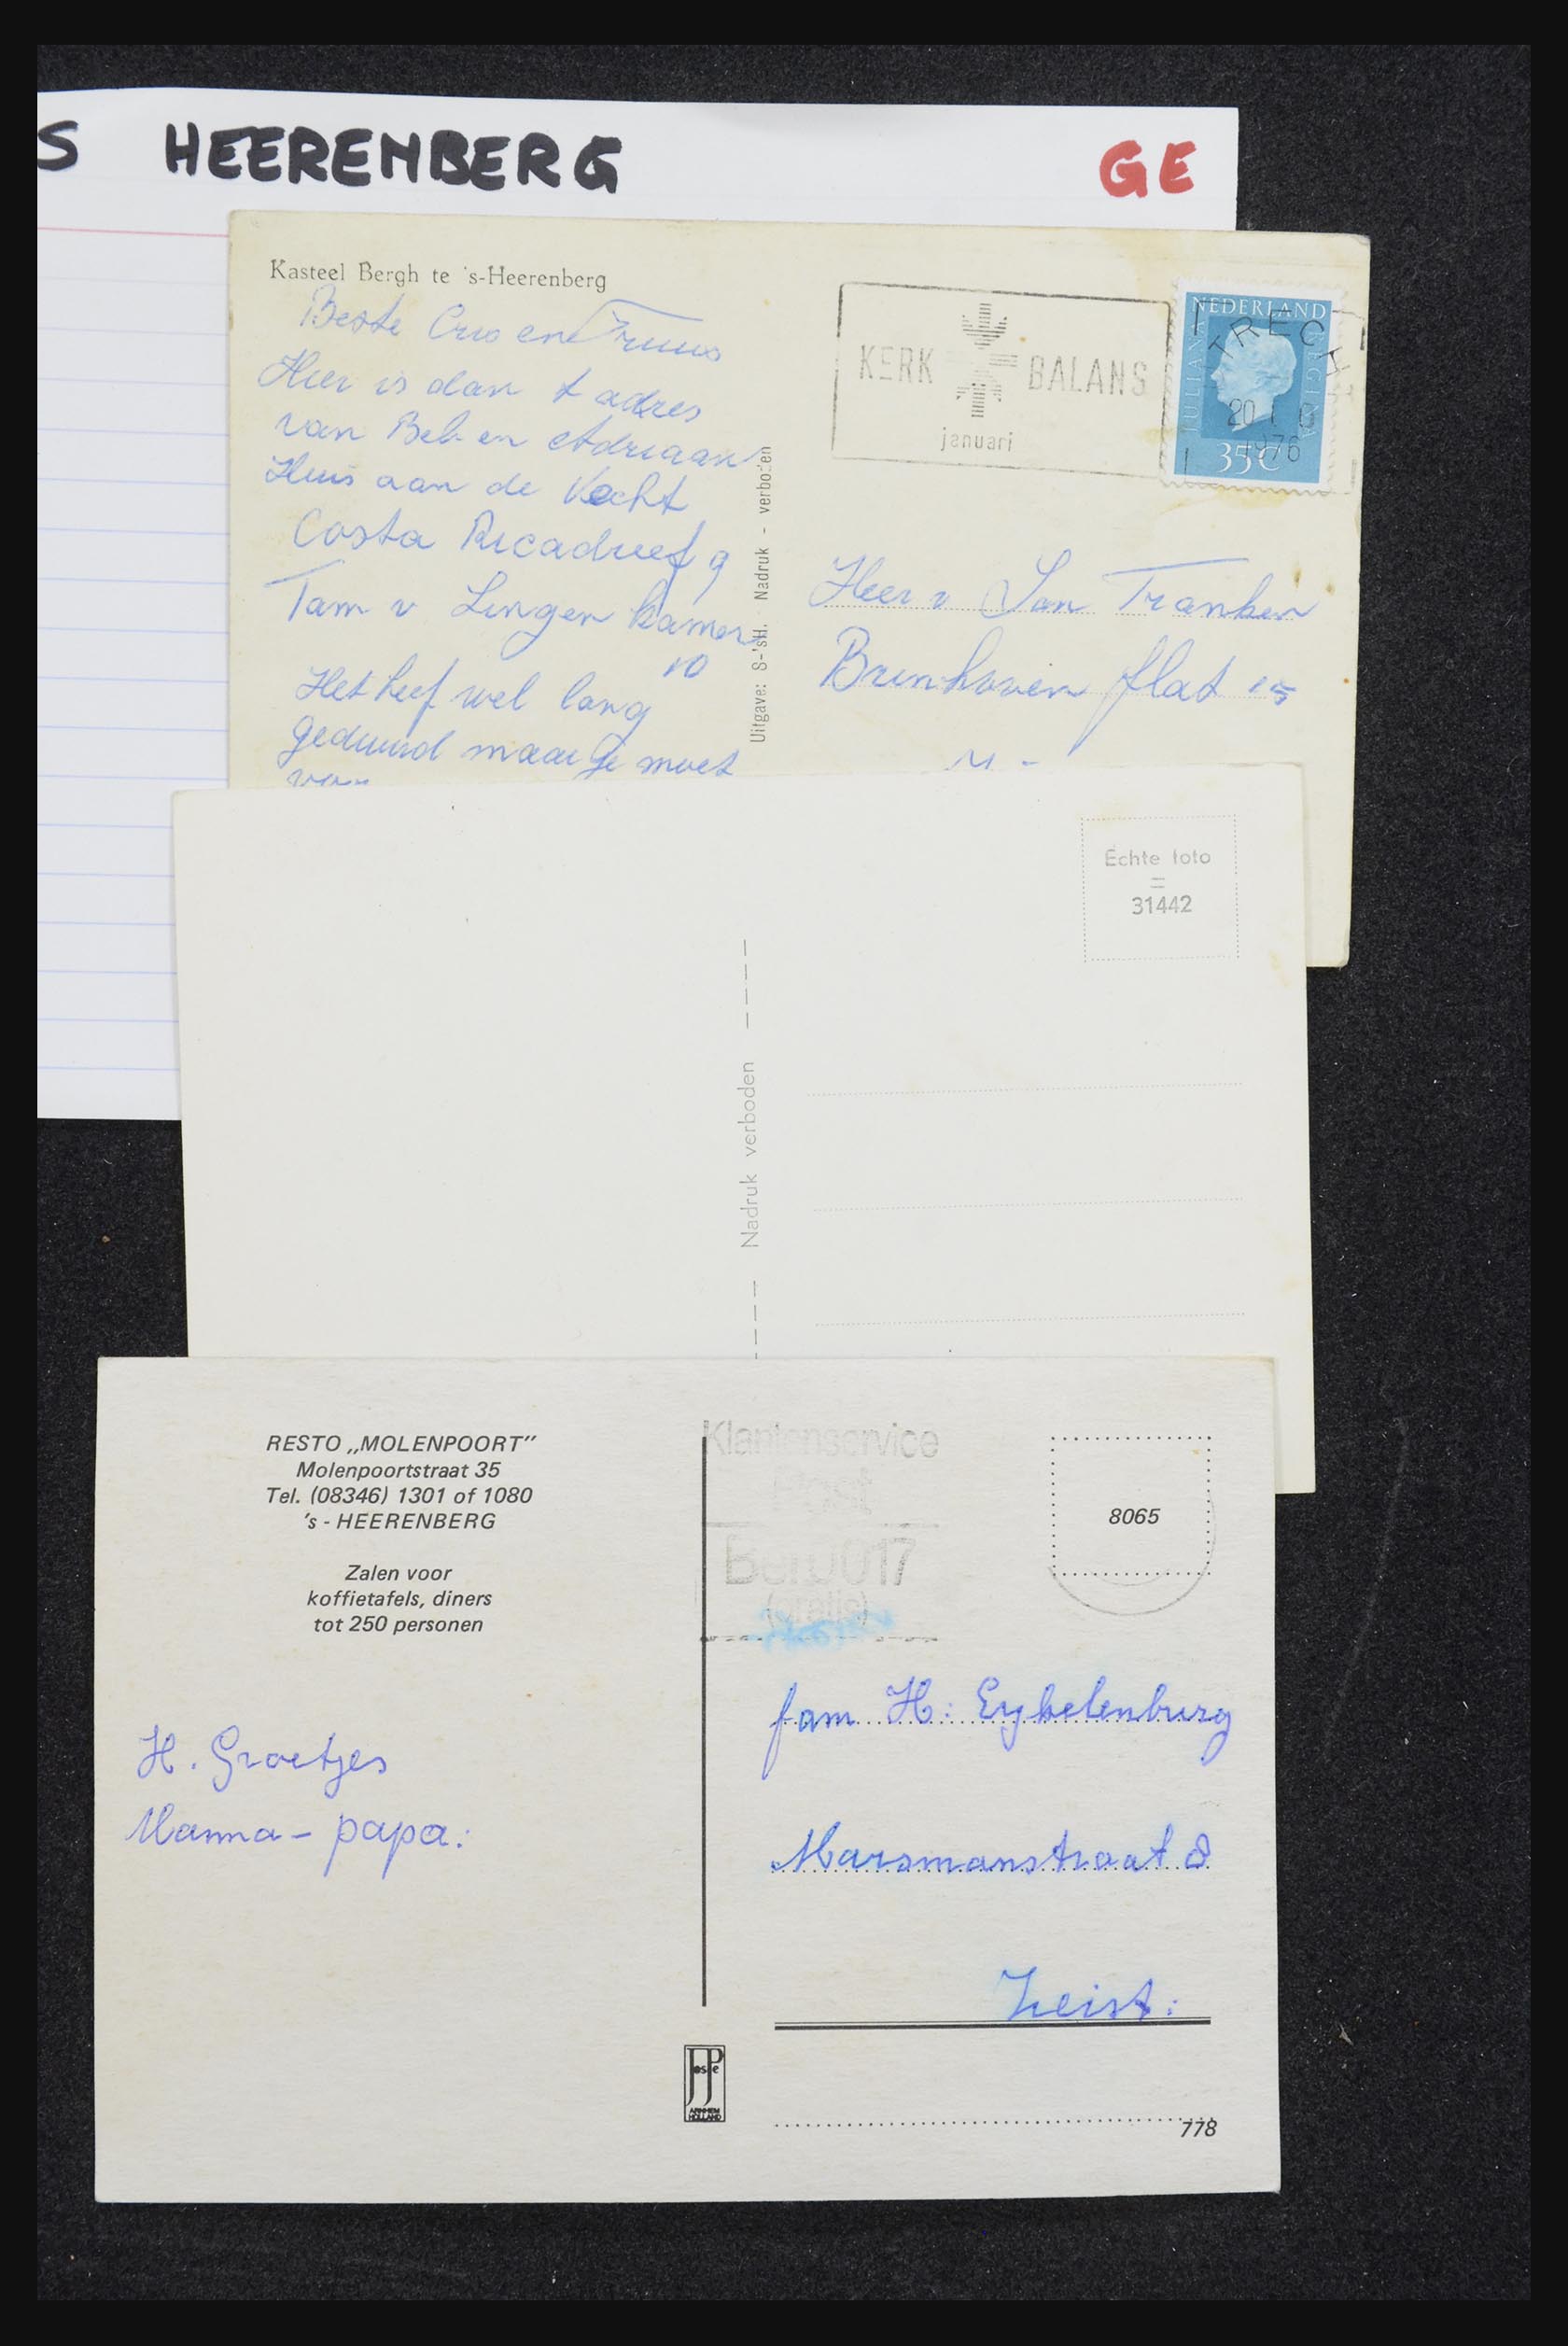 S HEERENBERG GE
Kasteel Bergh te 's-Heerenberg
Beste Cus en Truus
Hier is dan t adres
van Beb en Adriaan
Huis aan de Vecht
Costa Ricadreef 9
Tam v Lingen kamer
10
Het heef wel lang
geduurd maar je moet
Uitgave: S-'sH. Nadruk - verboden
KERK BALANS
januari
NEDERLAND
JULIANA REGINA
35c
TRECH
1976
Heer v San Tranken
Brunhoven flat 15
Echte foto
=
31442
Nadruk verboden
RESTO „MOLENPOORT”
Molenpoortstraat 35
Tel. (08346) 1301 of 1080
's - HEERENBERG
Zalen voor
koffietafels, diners
tot 250 personen
H. Groetjes
Mamma - papa:
Klantenservice
Post
Bel 0017
(gratis)
8065
fam H: Eykelenburg
Marsmanstraat 8
Zeist:
JosPe
ARNHEM
HOLLAND
778